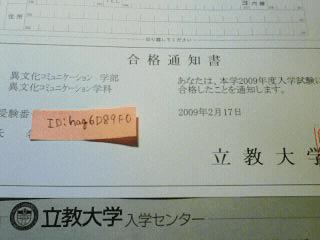 住所
内線
折り返してください
合格通知書
異文化コミュニケーション 学部
異文化コミュニケーション学科
あなたは、本学2009年度入学試験に
合格したことを通知します。
受験番
ID:hag6D89F0
2009年2月17日
氏 名
立教大学
立教大学 入学センター